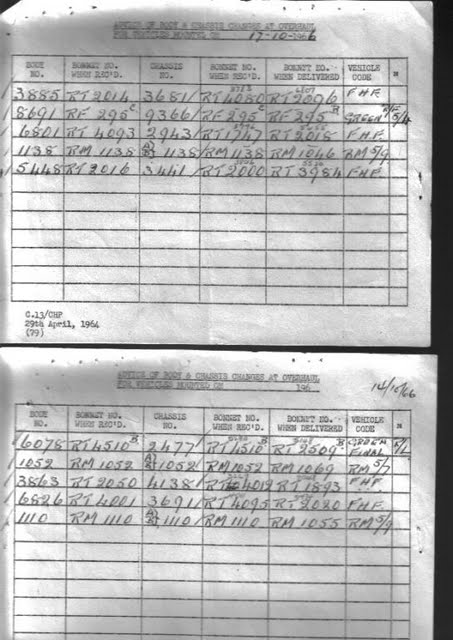 ADVICE OF BODY & CHASSIS CHANGES AT OVERHAUL
FOR VEHICLES MOUNTED ON 17-10-1966
BODY NO. BONNET NO. WHEN REC'D. CHASSIS NO. BONNET NO. WHEN REC'D. BONNET NO. WHEN DELIVERED VEHICLE CODE
3885 RT 2014 3681 RT 4080 RT 2096 FHF
8691 RF 295 C 9366 RF 295 C RF 295 B GREEN R/F 5/4
6801 RT 4093 2943 RT 1747 RT 2018 F.H.F.
1138 RM 1138 1138 RM 1138 RM 1046 RM 5/9
5448 RT 2016 3441 RT 2000 RT 3984 FHF
C.13/CHF
29th April, 1964
(79)
ADVICE OF BODY & CHASSIS CHANGES AT OVERHAUL
FOR VEHICLES MOUNTED ON 196
14/10/66
BODY NO. BONNET NO. WHEN REC'D. CHASSIS NO. BONNET NO. WHEN REC'D. BONNET NO. WHEN DELIVERED VEHICLE CODE
6078 RT 4510 B 2477 RT 4510 B RT 2509 B GREEN FINAL
1052 RM 1052 1052 RM 1052 RM 1069 RM 5/7
3863 RT 2050 4138 RT 4012 RT 1893 F.H.F.
6826 RT 4001 3691 RT 4095 RT 2020 F.H.F.
1110 RM 1110 1110 RM 1110 RM 1055 RM 5/9